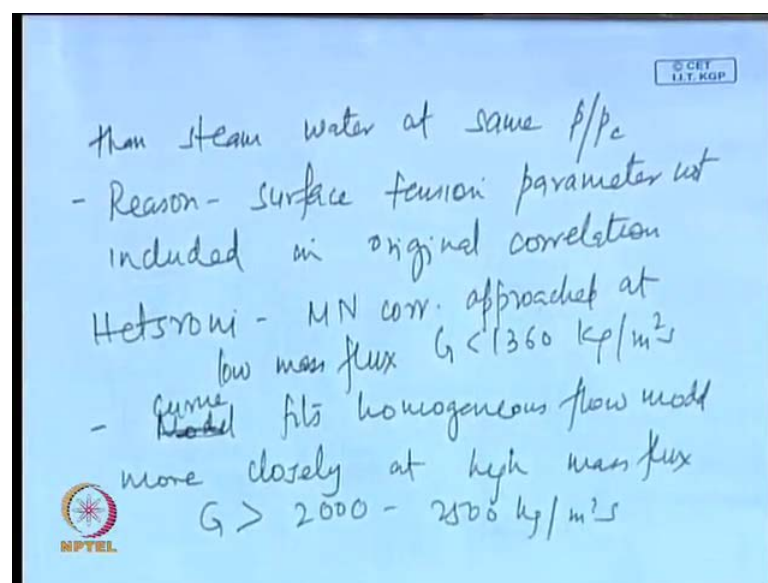 © CET
I.I.T. KGP
than steam water at same p/pc
- Reason - surface tension parameter not
included in original correlation
Hetsroni - MN corr. approached at
low mass flux G < 1360 kg/m²s
- curve fits homogeneous flow model
more closely at high mass flux
G > 2000 - 2500 kg/m²s
NPTEL